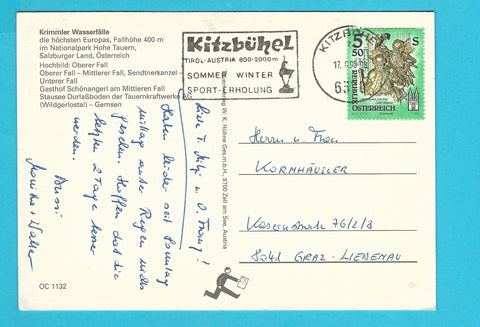 Krimmler Wasserfälle
die höchsten Europas, Fallhöhe 400 m
im Nationalpark Hohe Tauern,
Salzburger Land, Österreich
Hochbild: Oberer Fall
Oberer Fall – Mittlerer Fall, Sendtnerkanzel –
Unterer Fall
Gasthof Schönangerl am Mittleren Fall
Stausee Durlaßboden der Tauernkraftwerke AG
(Wildgerlostal) – Gemsen
Kitzbühel
TIROL-AUSTRIA 800-2000m
SOMMER WINTER
SPORT-ERHOLUNG
KITZBÜHEL
5 50
S
REPUBLIK
ÖSTERREICH
Haben leider seit Sonntag
mittag außer Regen nichts
gesehen. Hoffen daß die
letzten 2 Tage besser
werden.
Bussi
W. K. Höhne Ges.m.b.H., 5700 Zell am See, Austria
Herrn u. Frau
KORNHÄUSLER
Kasernstraße 76/2/8
8041 GRAZ-LIEBENAU
OC 1132